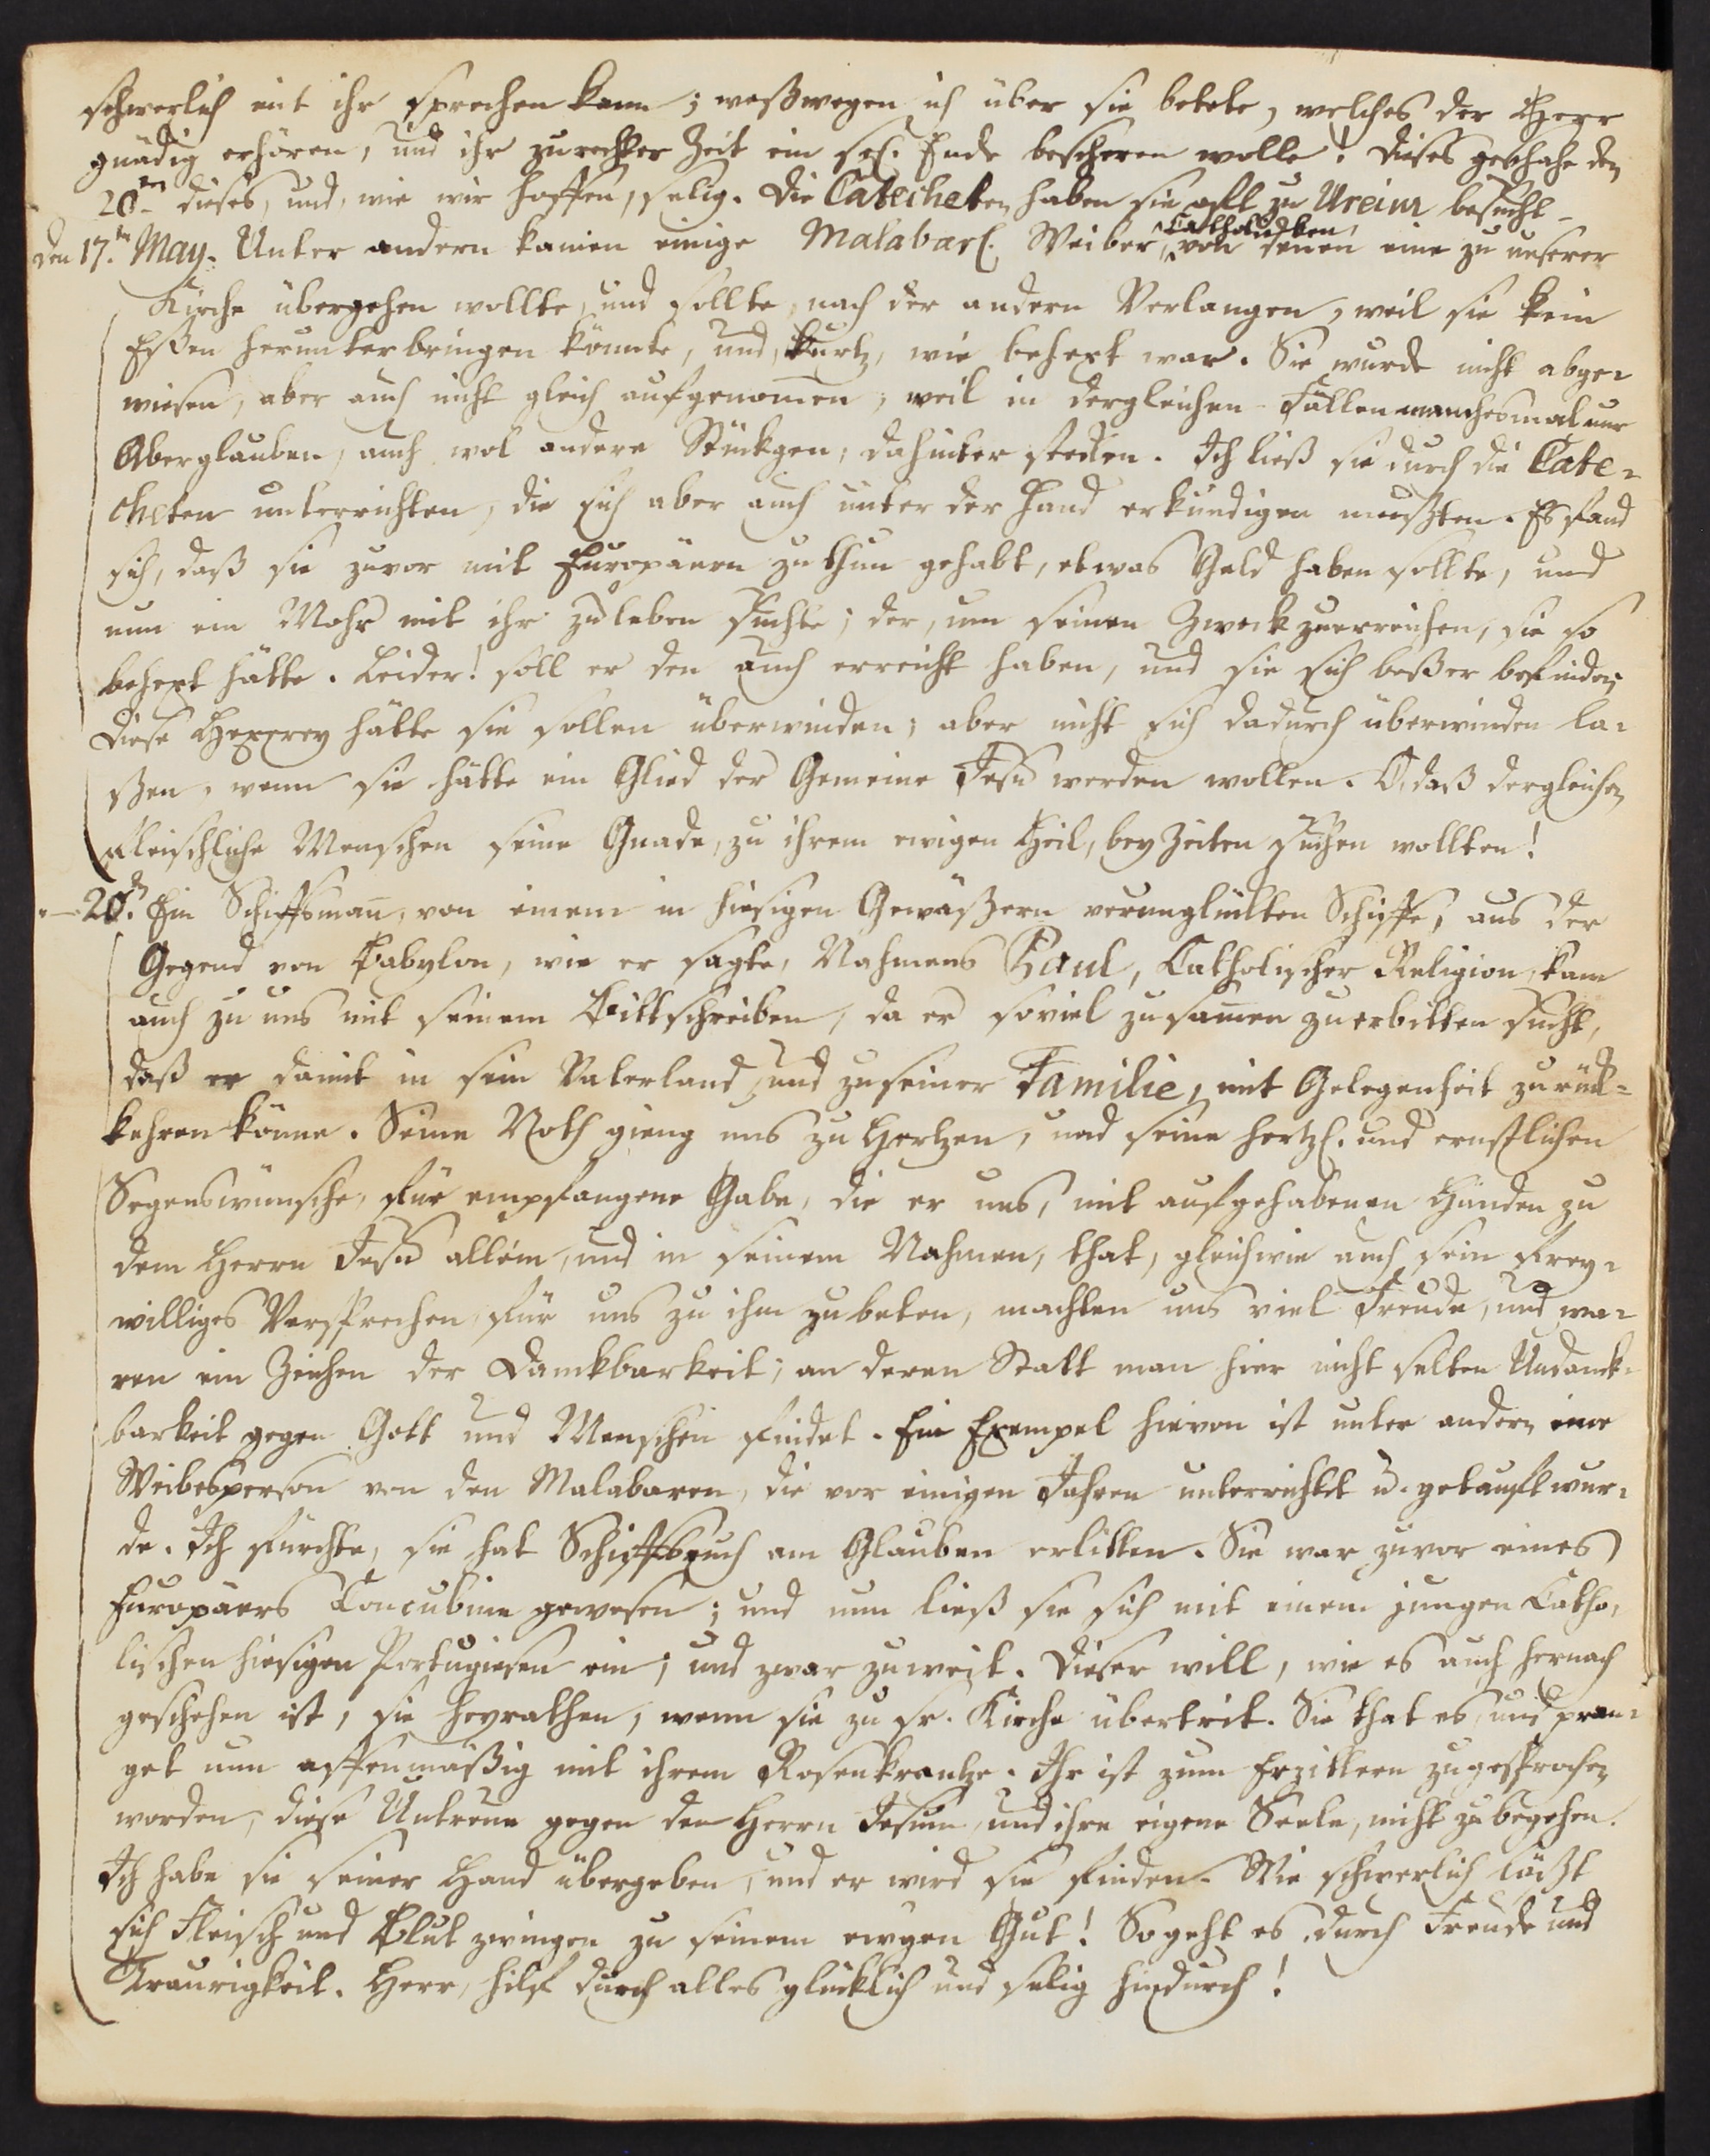 schwerlich mit ihr sprechen kann; weßwegen ich über sie betete, welches der Herr
gnädig erhören, und ihr zurechter Zeit ein sel. Ende bescheren wolle! Dieses geschahe den
20ten dieses, und, wie wir hoffen, selig. Die Catecheten haben sie oft zu Ureiur besucht.
den 17.ten May. Unter andern kamen einige Malabarl. Weiber, von denen eine zu unserer
Kirche übergehen wollte, und sollte, nach der andern Verlangen, weil sie kein
Eßen herunterbringen könnte, und, kurtz, wie behext war. Sie wurde nicht abge-
wiesen, aber auch nicht gleich aufgenom̄en; weil in dergleichen Fällen manchesmal nur
Aberglauben, auch wol andere Stückgen, dahinter stecken. Ich ließ sie durch die Cate-
cheten unterrichten, die sich aber auch unter der Hand erkundigen mußten. Es fand
sich, daß sie zuvor mit Europäern zu thun gehabt, etwas Geld haben sollte, und
nun ein Mohr mit ihr zu leben suchte; der, um seinen Zweck zuerreichen, sie so
behext hätte. Leider! soll er den auch erreicht haben, und sie sich beßer befinden.
Diese Hexerey hätte sie sollen überwinden; aber nicht sich dadurch überwinden la-
ßen, wenn sie hätte ein Glied der Gemeine Jesu werden wollen. O, daß dergleichen
fleischliche Menschen seine Gnade, zu ihrem ewigen Heil, bey Zeiten suchen wollten!
— 20.ten Ein Schiffsman̄, von einem in hiesigen Gewäßern verunglückten Schiffe, aus der
Gegend von Babylon, wie er sagte, Nahmens Paul, Catholischer Religion, kam
auch zu uns mit seinem Bittschreiben, da er soviel zusam̄en zuerbitten sucht,
daß er damit in sein Vaterland, und zu seiner Familie, mit Gelegenheit zurück-
kehren könne. Seine Noth gieng uns zu Hertzen, und seine hertzl. und ernstlichen
Segenswünsche, für empfangene Gabe, die er uns, mit aufgehabenen Händen zu
dem Herrn Jesu allein, und in seinem Nahmen, that, gleichwie auch sein frey-
williges Versprechen, für uns zu ihm zu beten, machten uns viel Freude, und wa-
ren ein Zeichen der Danckbarkeit; an deren Statt man hier nicht selten Undanck-
barkeit gegen Gott und Menschen findet. Ein Exempel hievon ist unter andern eine
Weibesperson von den Malabaren, die vor einigen Jahren unterrichtet u. getauft wur-
de. Ich fürchte, sie hat Schiffbruch am Glauben erlitten. Sie war zuvor eines
Europäers Concubine gewesen; und nun ließ sie sich mit einem jungen Catho-
lischen hiesigen Portugiesen ein; und zwar zu weit. Dieser will, wie es auch hernach
geschehen ist, sie heyrathen, wenn sie zu sr. Kirche übertrit. Sie that es, und pran-
get nun affenmäßig mit ihrem Rosenkrantze. Ihr ist zum Erzittern zugesprochen
worden, diese Untreue gegen den Herrn Jesum, und ihre eigene Seele, nicht zu begehen.
Ich habe sie seiner Hand übergeben, und er wird sie finden. Wie schwerlich läßt
sich Fleisch und Blut zwingen zu seinem ewgen Gut! So geht es durch Freude und
Traurigkeit. Herr, hilf durch alles glücklich und selig hindurch!